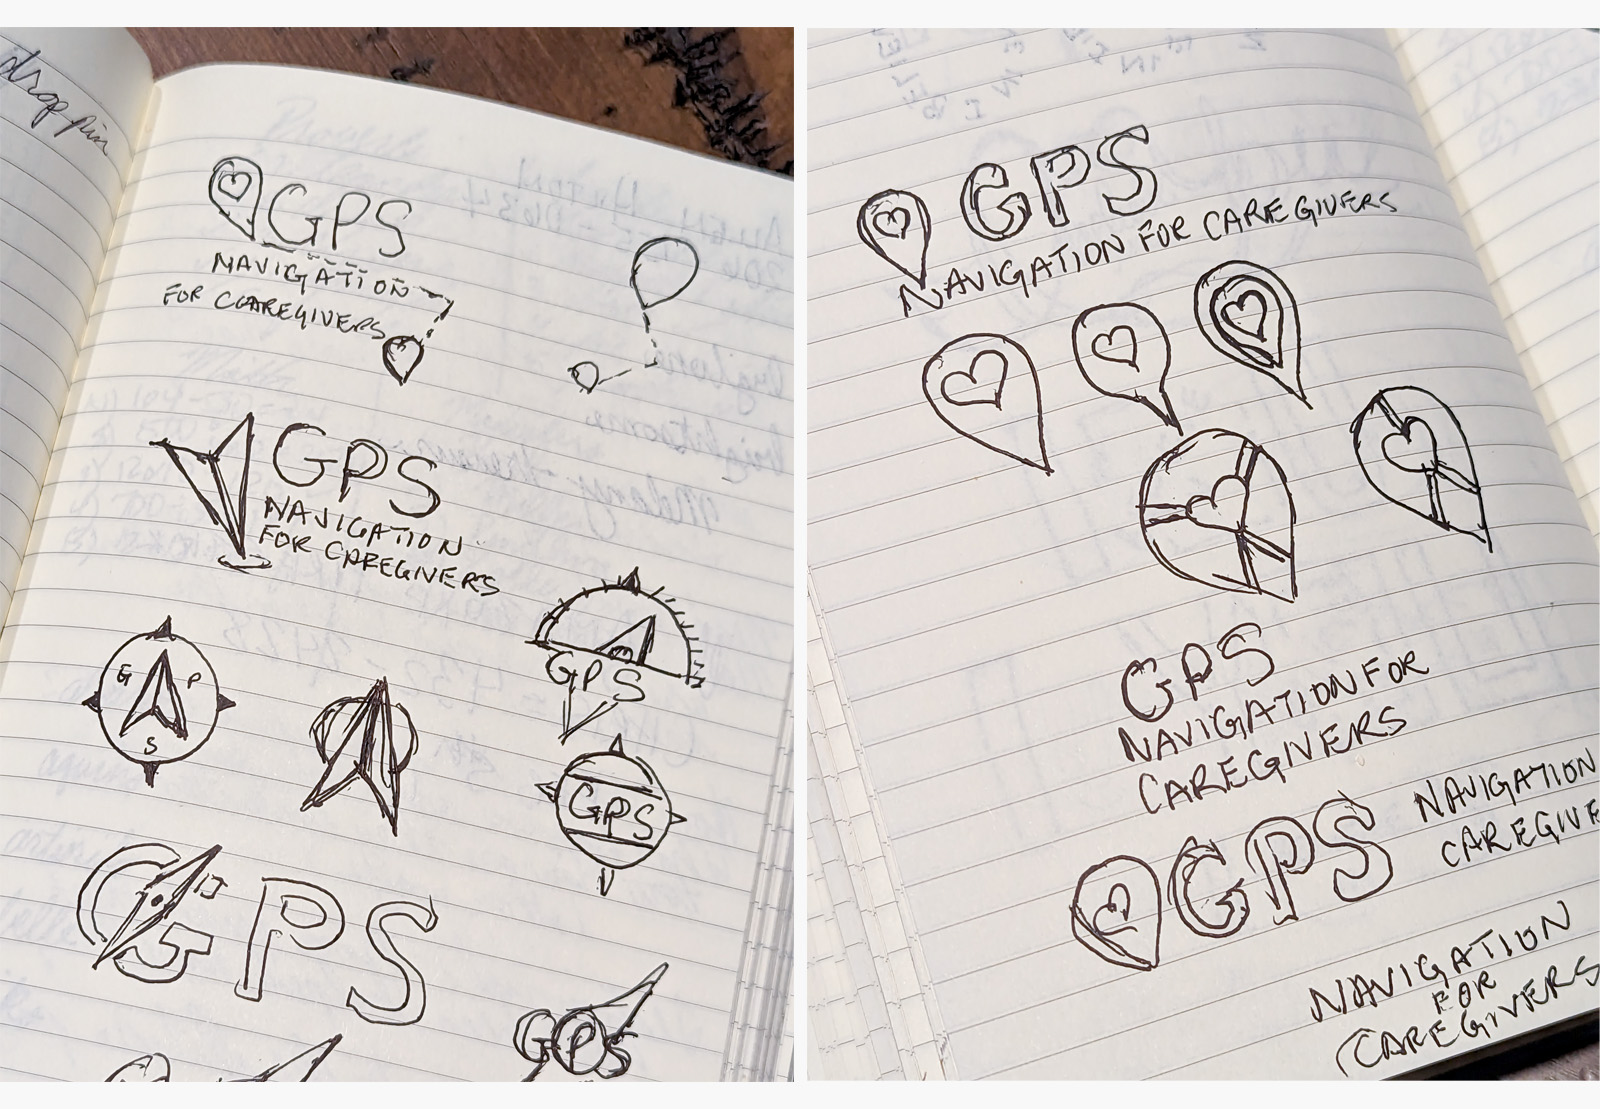 drop pin
GPS
NAVIGATION
FOR CAREGIVERS
GPS
NAVIGATION
FOR CAREGIVERS
GPS
G P
S
GPS
GPS
GPS
GPS
NAVIGATION FOR CAREGIVERS
GPS
NAVIGATION FOR
CAREGIVERS
GPS
NAVIGATION
CAREGIVE
NAVIGATION
FOR
CAREGIVERS